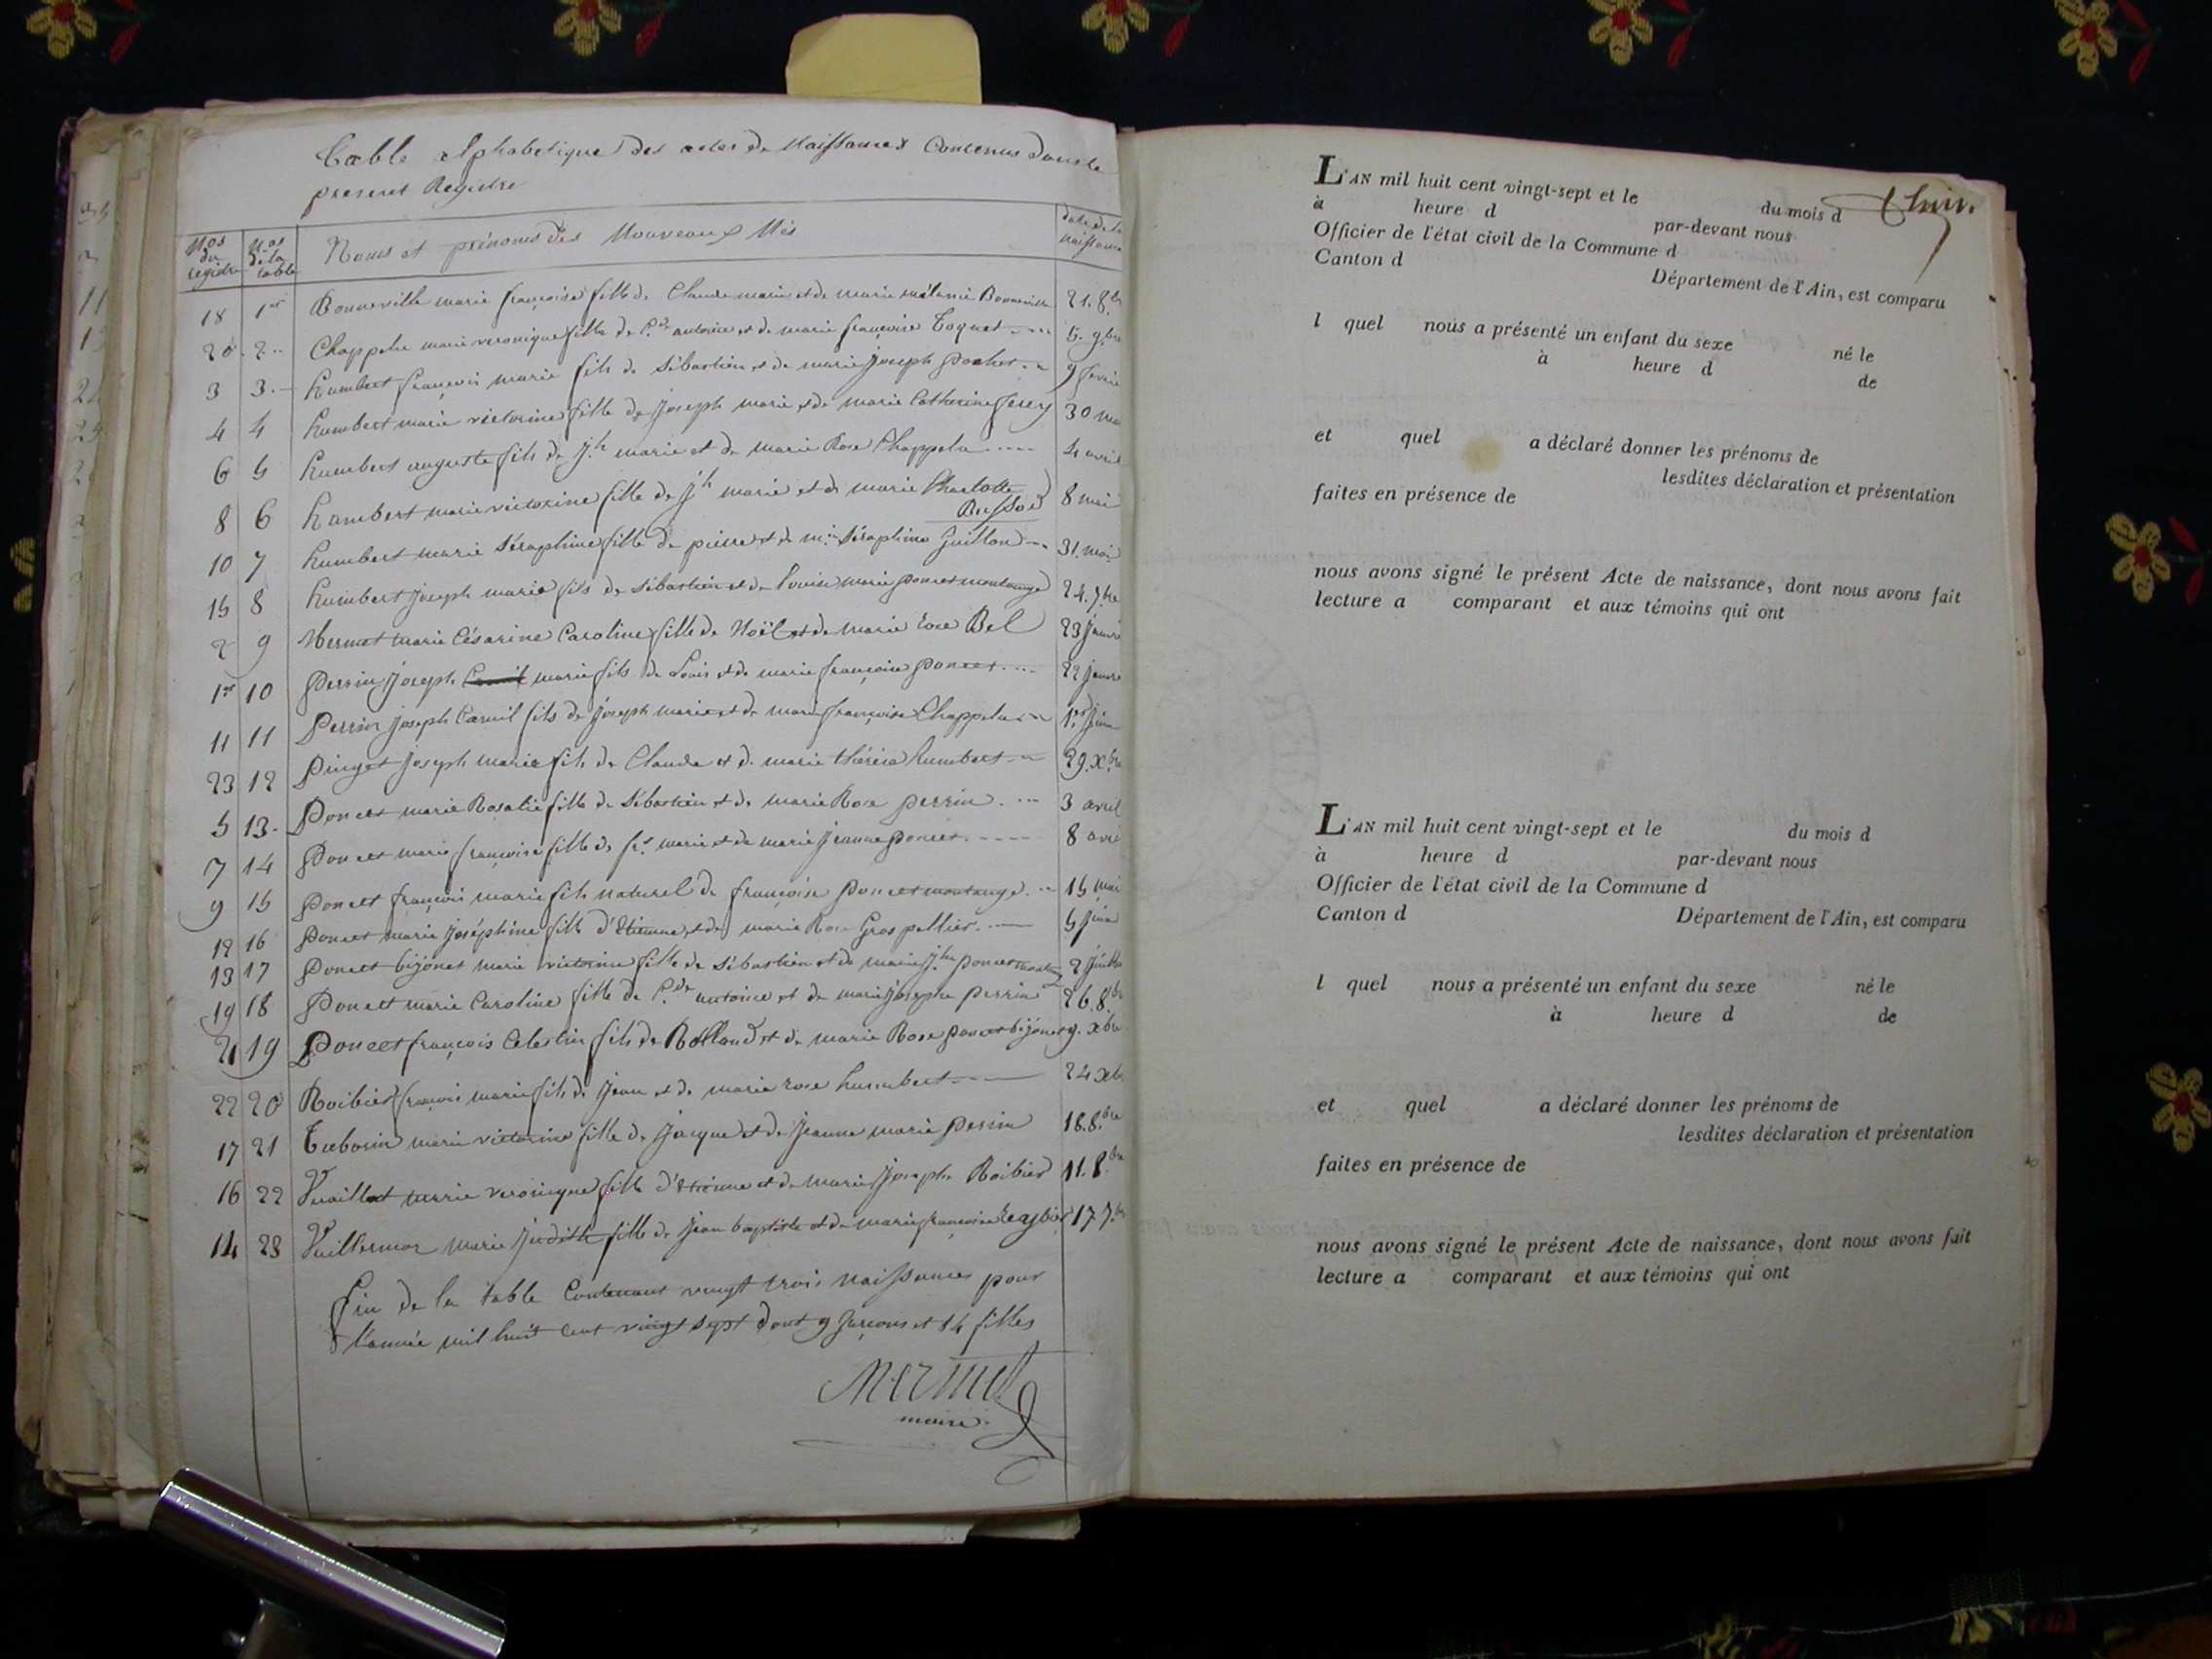 Table alphabetique des actes de Naissances Contenus dans le
present Registre
Nos du registre
Nos de la table
Noms et prénoms des Nouveaux Nés
date de la naissance
18 1er Bonneville marie françoise fille de Claude marie et de marie mélanie Bonneville 21. 8bre
20. 2.. Chappelu marie veronique fille de Cde antoine et de marie françoise Toquet 5. 9bre
3 3. humbert françois marie fils de Sébastien et de marie joseph 9 fevrier
4 4 humbert marie victorine fille de Joseph marie et de marie Catherine 30 
6 5 humbert auguste fils de jh marie et de marie Rose Chappelu 4 avril
8 6 humbert marie victorine fille de jh marie et de marie Charlotte 8 mai
10 7 humbert marie Séraphine fille de pierre et de mie Séraphine Guillon 31. mai
15 8 humbert joseph marie fils de Sébastien et de louise marie poncet montange 24. 7bre
2 9 Mermet marie Césarine Caroline fille de Noël et de marie Rose Bel 23 janvier
1er 10 Perrin joseph marie fils de Louis et de marie françoise poncet 22 janvier
11 11 Perrin joseph Camil fils de joseph marie et de marie françoise Chappelu 1er juin
23 12 Pinget joseph marie fils de Claude et de marie thérèse humbert 29. Xbre
5 13. Poncet marie Rosalie fille de Sébastien et de marie Rose perrin 3 avril
7 14 Poncet marie françoise fille de fs marie et de marie jeanne poncet 8 avril
9 15 Poncet françois marie fils naturel de françoise poncet montange 15 mai
12 16 Poncet marie joséphine fille d'Etienne et de marie Rose Gros pellier 5 juin
13 17 Poncet bijonet marie victorine fille de Sébastien et de marie jhe poncet montange 2 juillet
19 18 Poncet marie Caroline fille de Cde antoine et de marie josephe perrin 26. 8bre
21 19 Poncet françois Celestin fils de Rolland et de marie Rose poncet bijonet 9. xbre
22 20 Roibier françois marie fils de jean et de marie rose humbert 24 xbre
17 21 Tuborin marie victorine fille de jacque et de jeanne marie perrin 18. 8bre
16 22 Vuaillat marie veronique fille d'étienne et de marie josephe Roibier 11. 8bre
14 23 Vuillermoz marie judith fille de jean baptiste et de marie françoise 17 7bre
fin de la table Contenant vingt trois naissances pour
l'année mil huit cent vingt sept dont 9 garçons et 14 filles
Mermet
maire
L'AN mil huit cent vingt-sept et le du mois d
à heure d par-devant nous
Officier de l'état civil de la Commune d
Canton d Département de l'Ain, est comparu
l quel nous a présenté un enfant du sexe né le
à heure d de
et quel a déclaré donner les prénoms de
lesdites déclaration et présentation
faites en présence de
nous avons signé le présent Acte de naissance, dont nous avons fait
lecture a comparant et aux témoins qui ont
L'AN mil huit cent vingt-sept et le du mois d
à heure d par-devant nous
Officier de l'état civil de la Commune d
Canton d Département de l'Ain, est comparu
l quel nous a présenté un enfant du sexe né le
à heure d de
et quel a déclaré donner les prénoms de
lesdites déclaration et présentation
faites en présence de
nous avons signé le présent Acte de naissance, dont nous avons fait
lecture a comparant et aux témoins qui ont